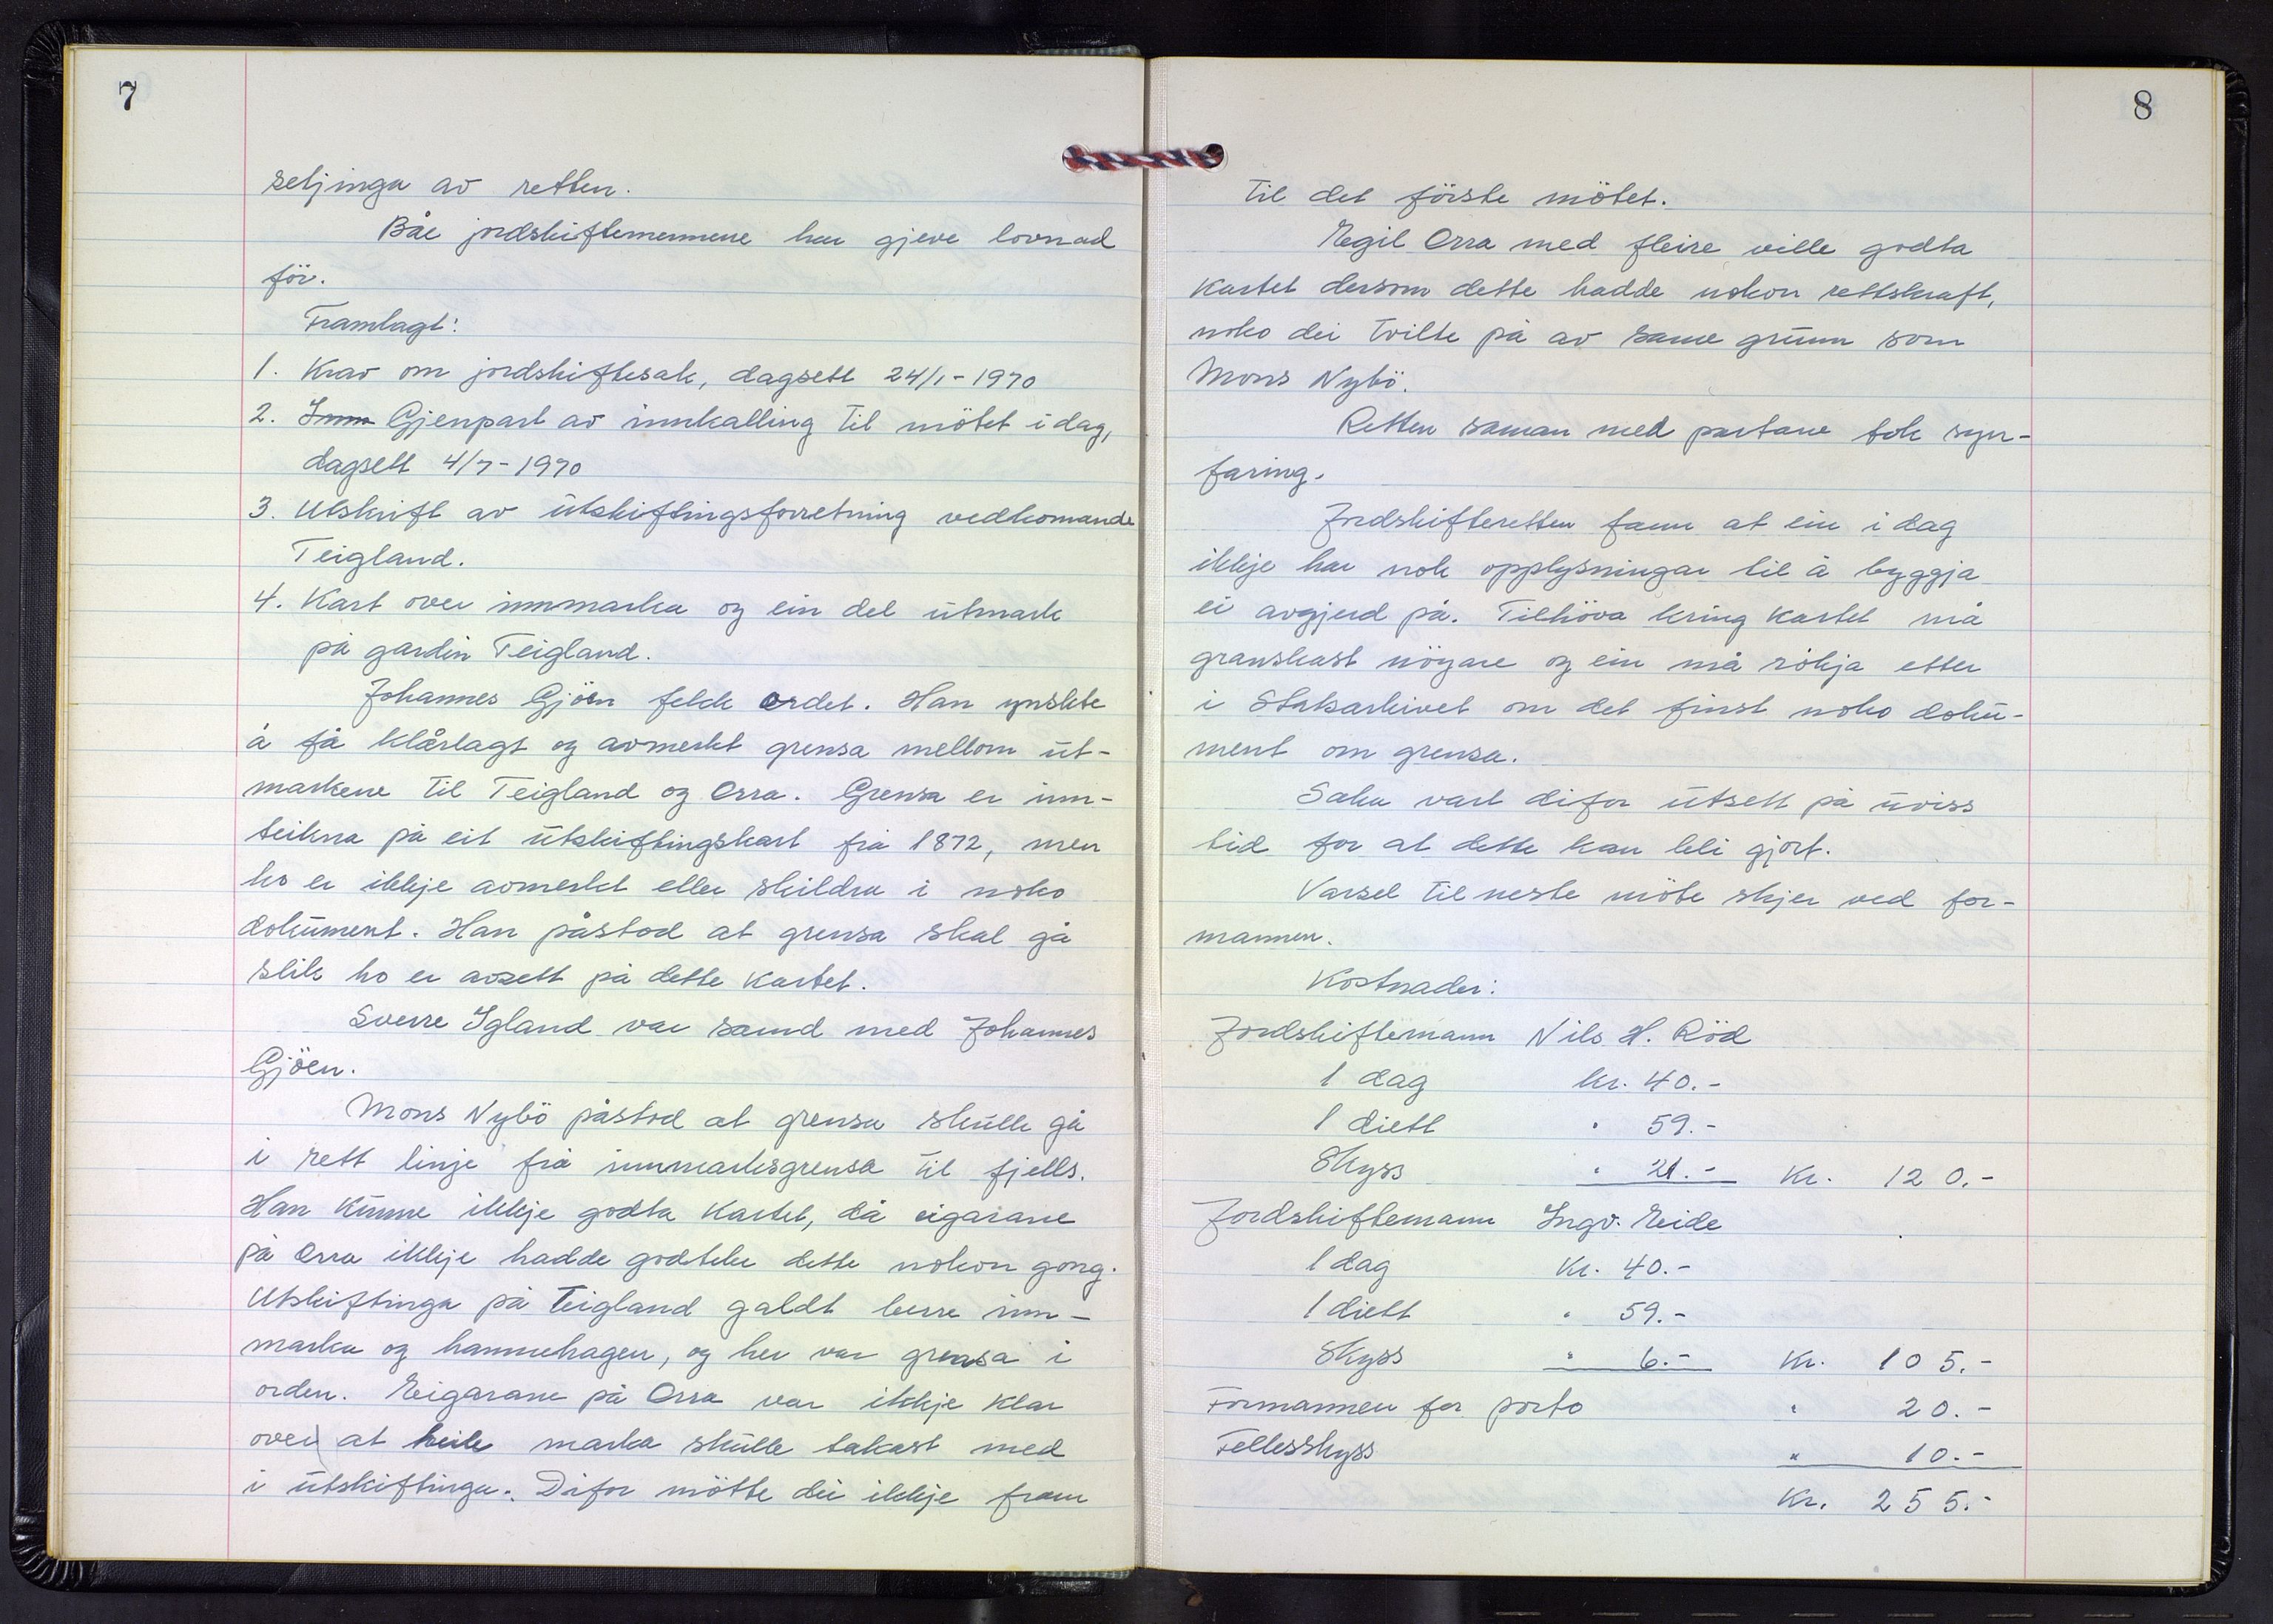 7
seljinga av retten.
Båe jordskiftemennene har gjeve lovnad
för.
Framlagt:
1. Krav om jordskiftesak, dagsett 24/1-1970
2. Inn Gjenpart av innkalling til mötet i dag,
dagsett 4/7-1970
3. Utskrift av utskiftingsforretning vedkomande
Teigland.
4. Kart over innmarka og ein del utmark
på gardin Teigland.
Johannes Gjöen fekk ordet. Han ynskte
å få klårlagt og avmerkt grensa mellom ut-
markene til Teigland og Orra. Grensa er inn-
teikna på eit utskiftingskart frå 1872, men
ho er ikkje avmerkt eller skildra i noko
dokument. Han påstod at grensa skal gå
slik ho er avsett på dette kartet.
Sverre Igland var samd med Johannes
Gjöen.
Mons Nybö påstod at grensa skulle gå
i rett linje frå innmarksgrensa til fjells.
Han kunne ikkje godta kartet, då eigarane
på Orra ikkje hadde godteke dette nokon gong.
Utskiftinga på Teigland galdt berre inn-
marka og hamnehagen, og her var grensa i
orden. Eigarane på Orra var ikkje klar
over at heile marka skulle takast med
i utskiftinga. Difor mötte dei ikkje fram
8
til det förste mötet.
Egil Orra med fleire ville godta
kartet dersom dette hadde nokon rettskraft,
noko dei tvilte på av same grunn som
Mons Nybö.
Retten saman med partane tok syn-
faring.
Jordskifteretten fann at ein i dag
ikkje har nok opplysningar til å byggja
ei avgjerd på. Tilhöva kring kartet må
granskast nögare og ein må rökja etter
i Statsarkivet om det finst noko doku-
ment om grensa.
Saka vart difor utsett på uviss
tid for at dette kan bli gjort.
Varsel til neste möte skjer ved for-
mannen.
Kostnader:
Jordskiftemann Nils H. Röd
1 dag kr. 40.-
1 diett " 59.-
Skyss " 21.- Kr. 120.-
Jordskiftemann Ingv. Eide
1 dag Kr. 40.-
1 diett " 59.-
Skyss " 6.- Kr. 105.-
Formannen for porto " 20.-
Fellesskyss " 10.-
Kr. 255.-